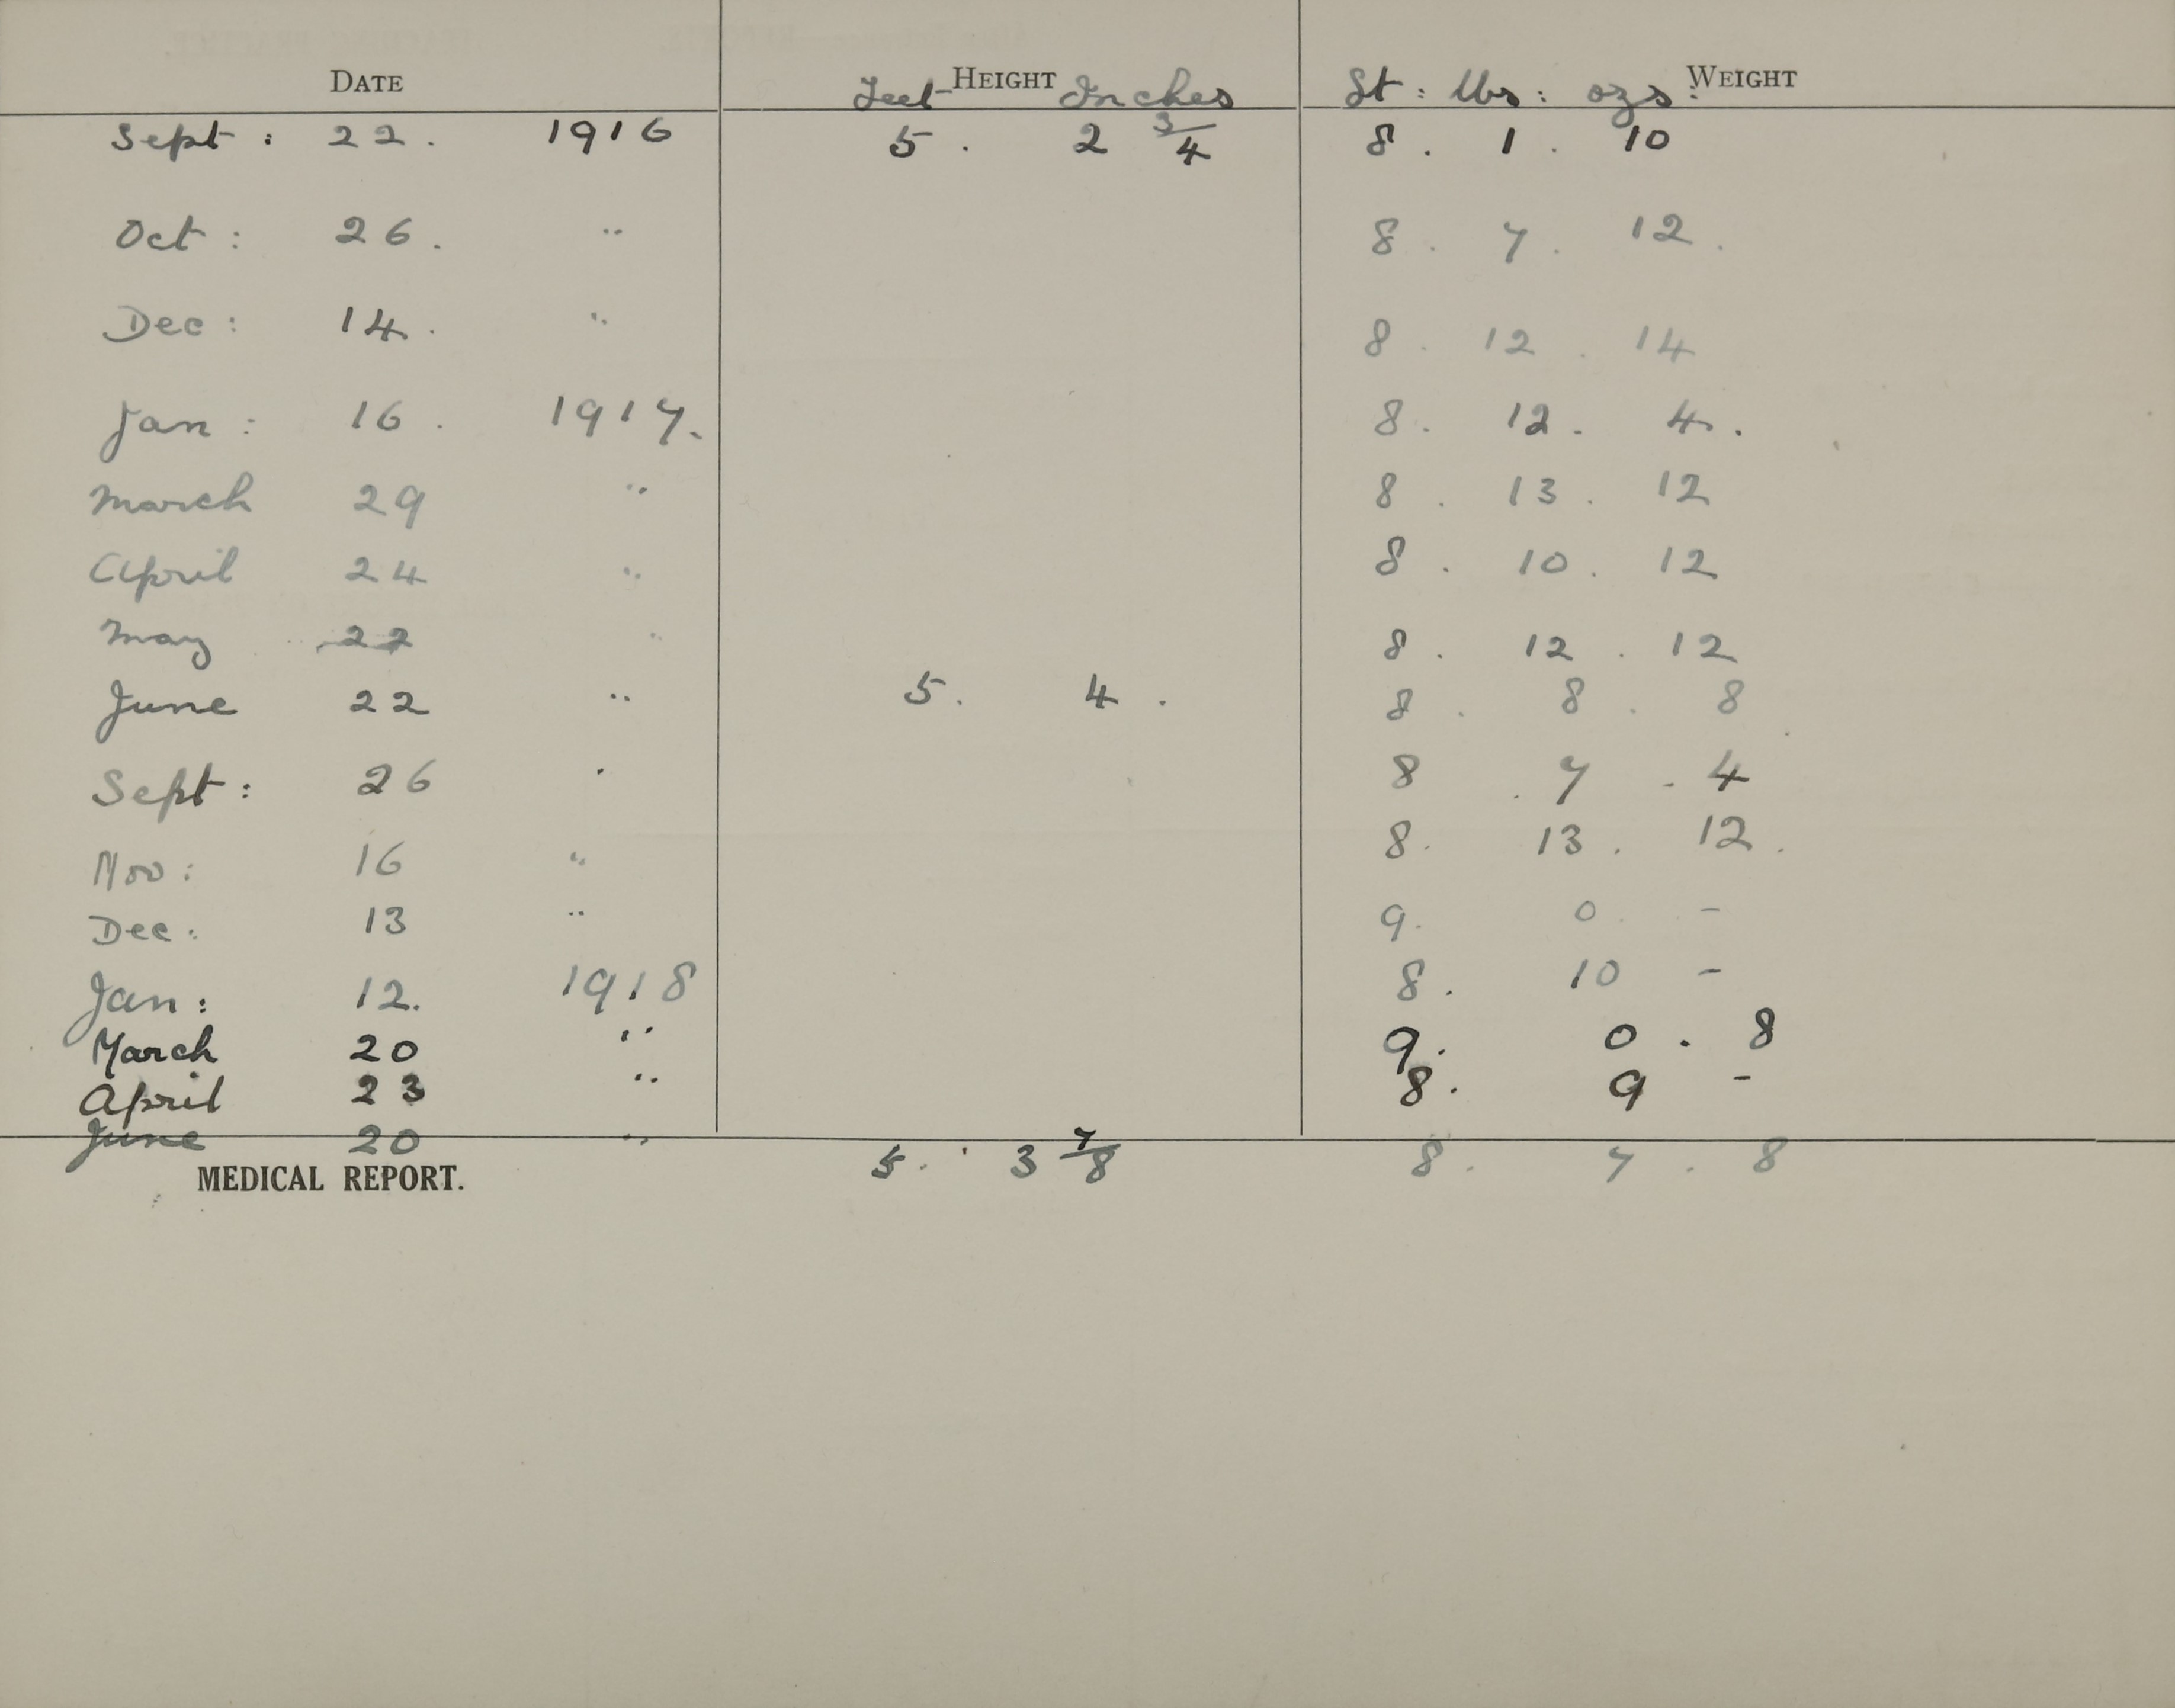 DATE Feet HEIGHT Inches St: lbs: ozs: WEIGHT
Sept: 22. 1916 5. 2 3/4 8. 1. 10
Oct: 26. " 8. 7. 12.
Dec: 14. " 8. 12. 14
Jan: 16. 1917. 8. 12. 4.
March 29 " 8. 13. 12
April 24 " 8. 10. 12
May 22 " 8. 12. 12
June 22 " 5. 4. 8. 8. 8
Sept: 26 " 8. 7. 4
Nov: 16 " 8. 13. 12.
Dec: 13 " 9. 0. -
Jan: 12. 1918 8. 10 -
March 20 " 9. 0. 8
April 23 " 8. 9 -
June 20 " 5. 3 7/8 8. 7. 8
MEDICAL REPORT.